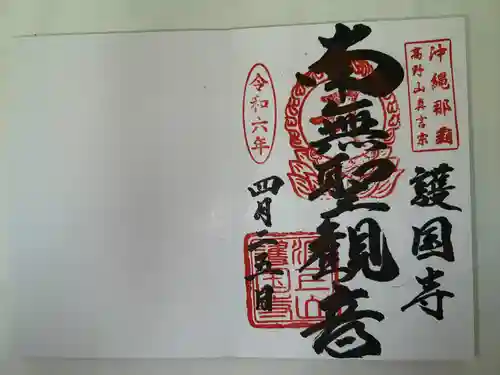 沖縄那覇
高野山真言宗
護国寺
南無聖観音
令和六年
四月二五日